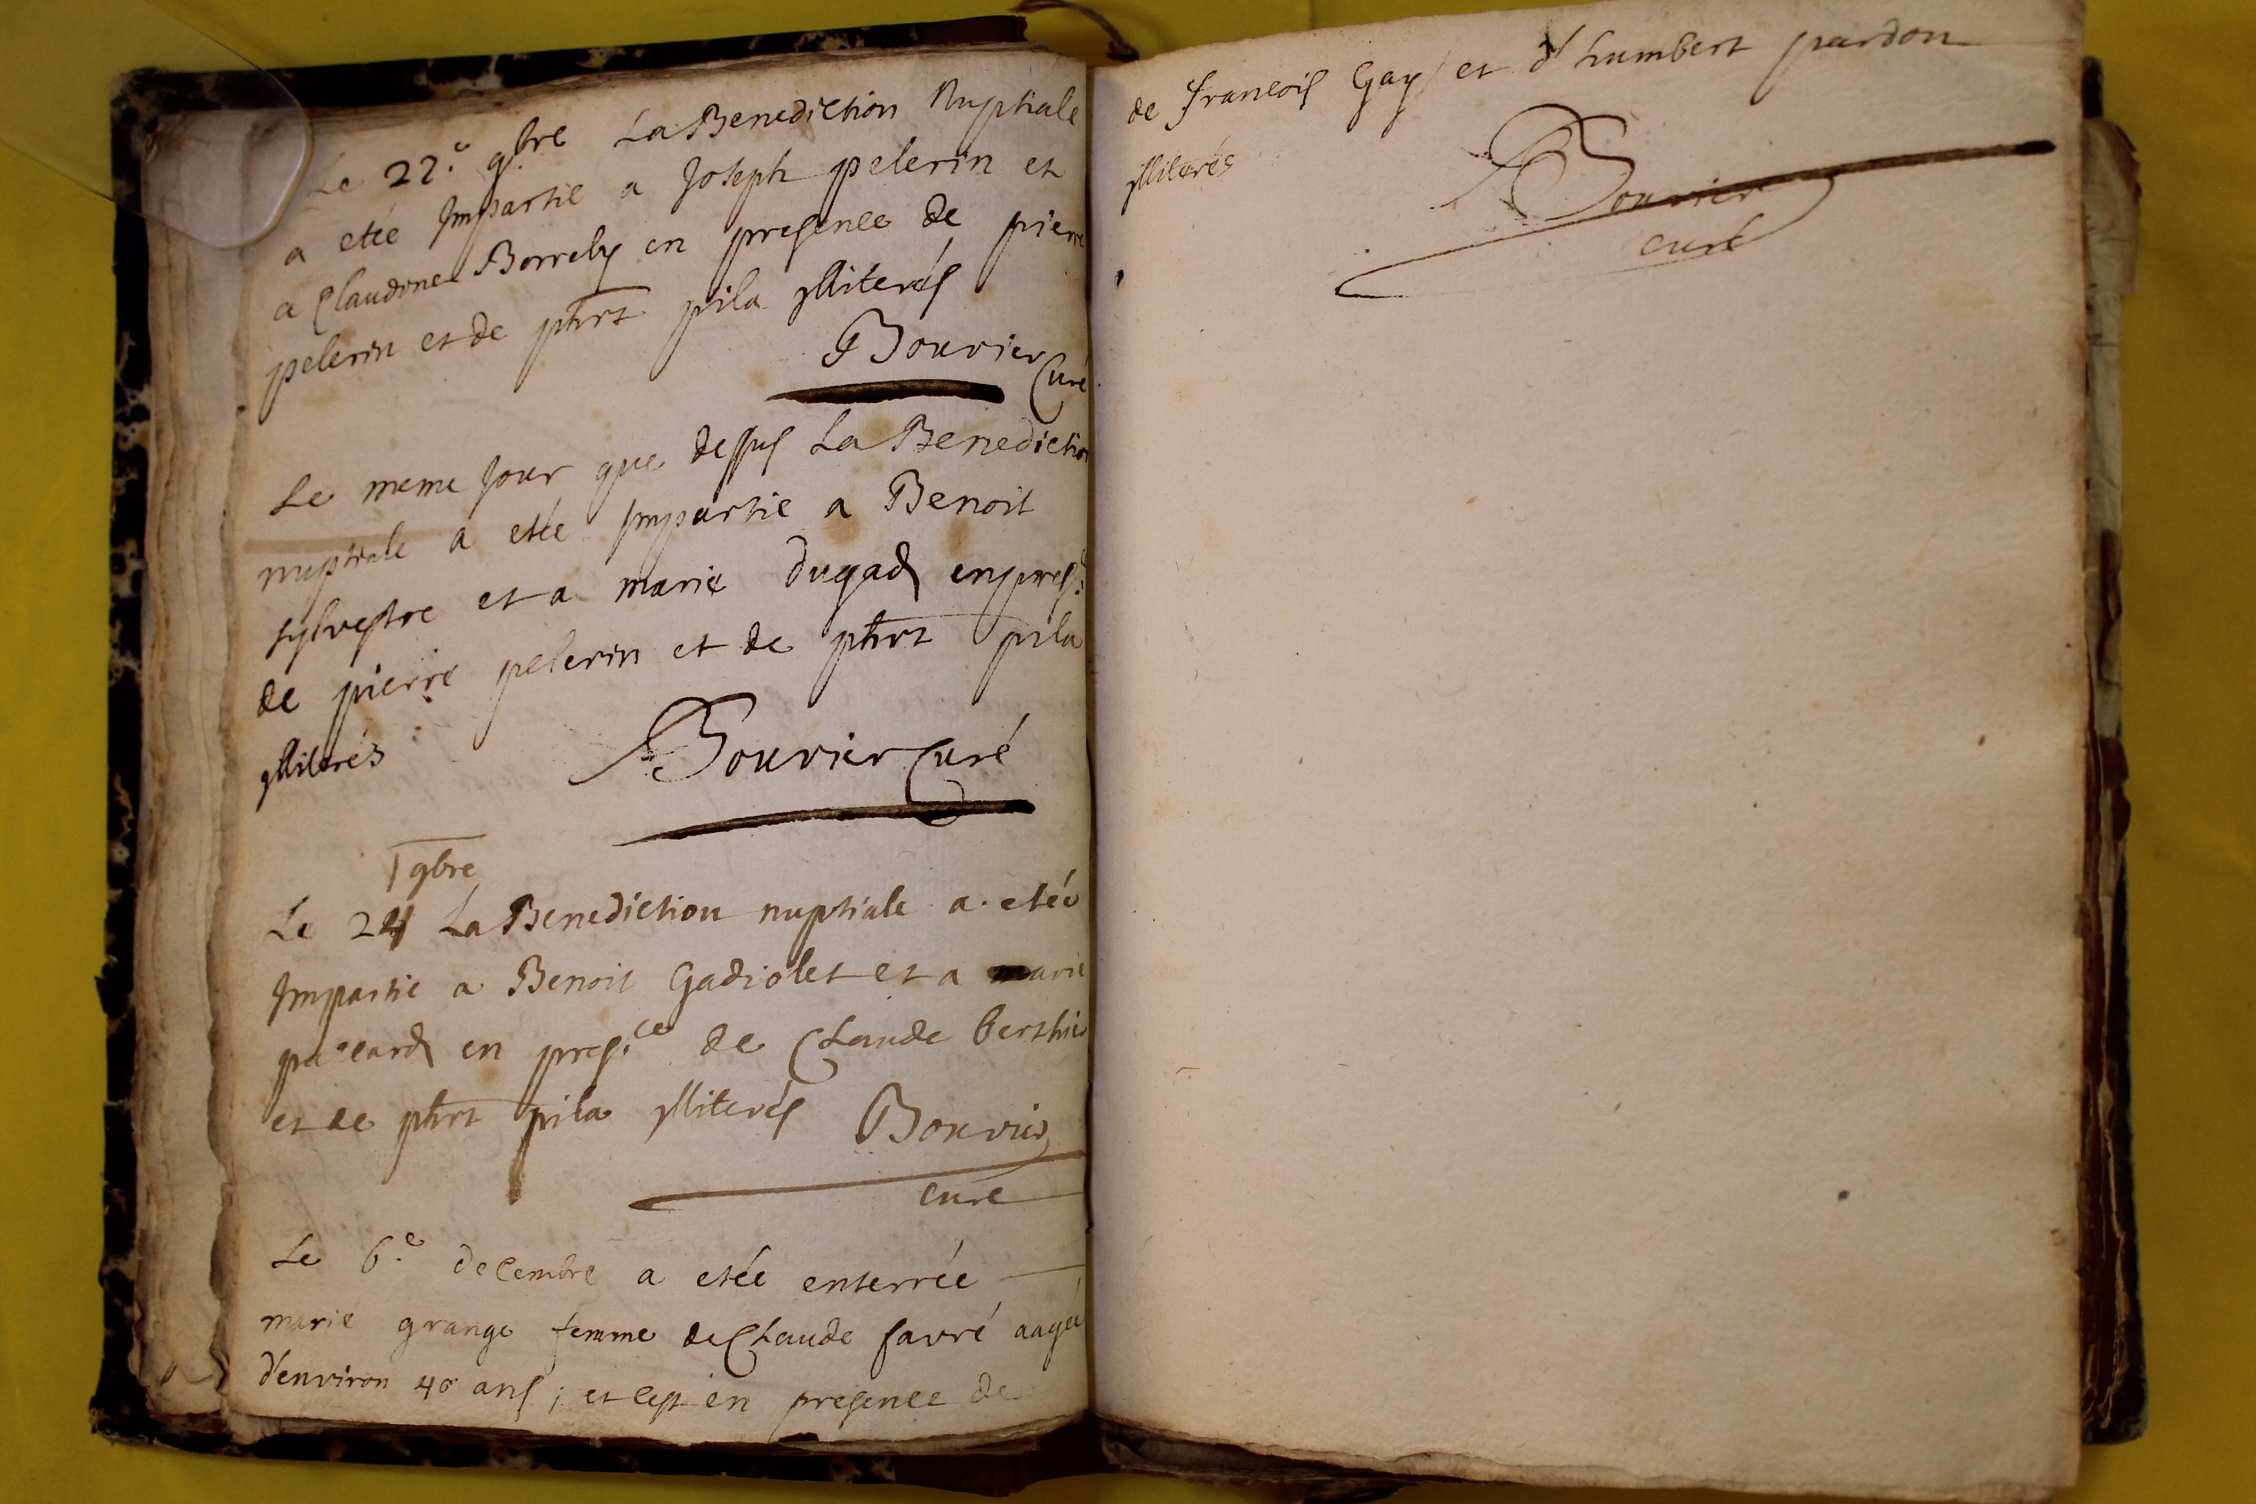 Le 22.e 9bre La Benediction Nuptiale
a etée Jmpartie a Joseph pelerin et
a Claudine Borrely en presence de pierre
pelerin et de phrt pila jlliterés
Bouvier Curé
Le meme Jour que dessus La Benediction
nuptiale a etée Jmpartie a Benoit
sylvestre et a marie dugad en pres.ce
de pierre pelerin et de phrt pila
jlliterés Bouvier Curé
9bre
Le 24 La Benediction nuptiale a etée
Jmpartie a Benoit Gadiolet et a marie
paccard en pres.ce de Claude berthier
et de phrt pila jlliterés Bouvier
curé
Le 6.e decembre a etée enterrée
marie grange femme de Claude favré aagée
d'environ 40 ans; et c'est en presence de
de francois Gay et d'humbert pardon
jlliterés
Bouvier
curé